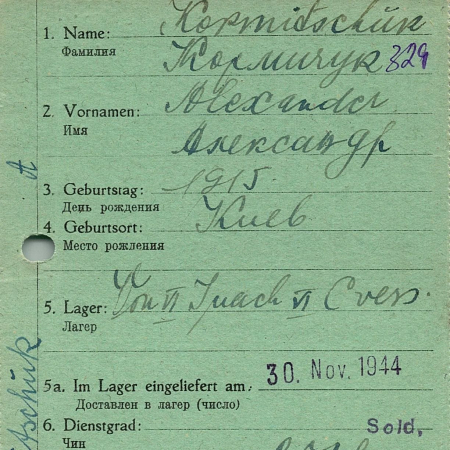 1. Name: Kopmitschuk
Фамилия Кормичук 329
2. Vornamen: Alexander
Имя Александр
3. Geburtstag: 1915.
День рождения
4. Geburtsort: Киев
Место рождения
5. Lager: Von II nach VI
Лагер
5a. Im Lager eingeliefert am: 30. Nov. 1944
Доставлен в лагер (число)
6. Dienstgrad: Sold.
Чин